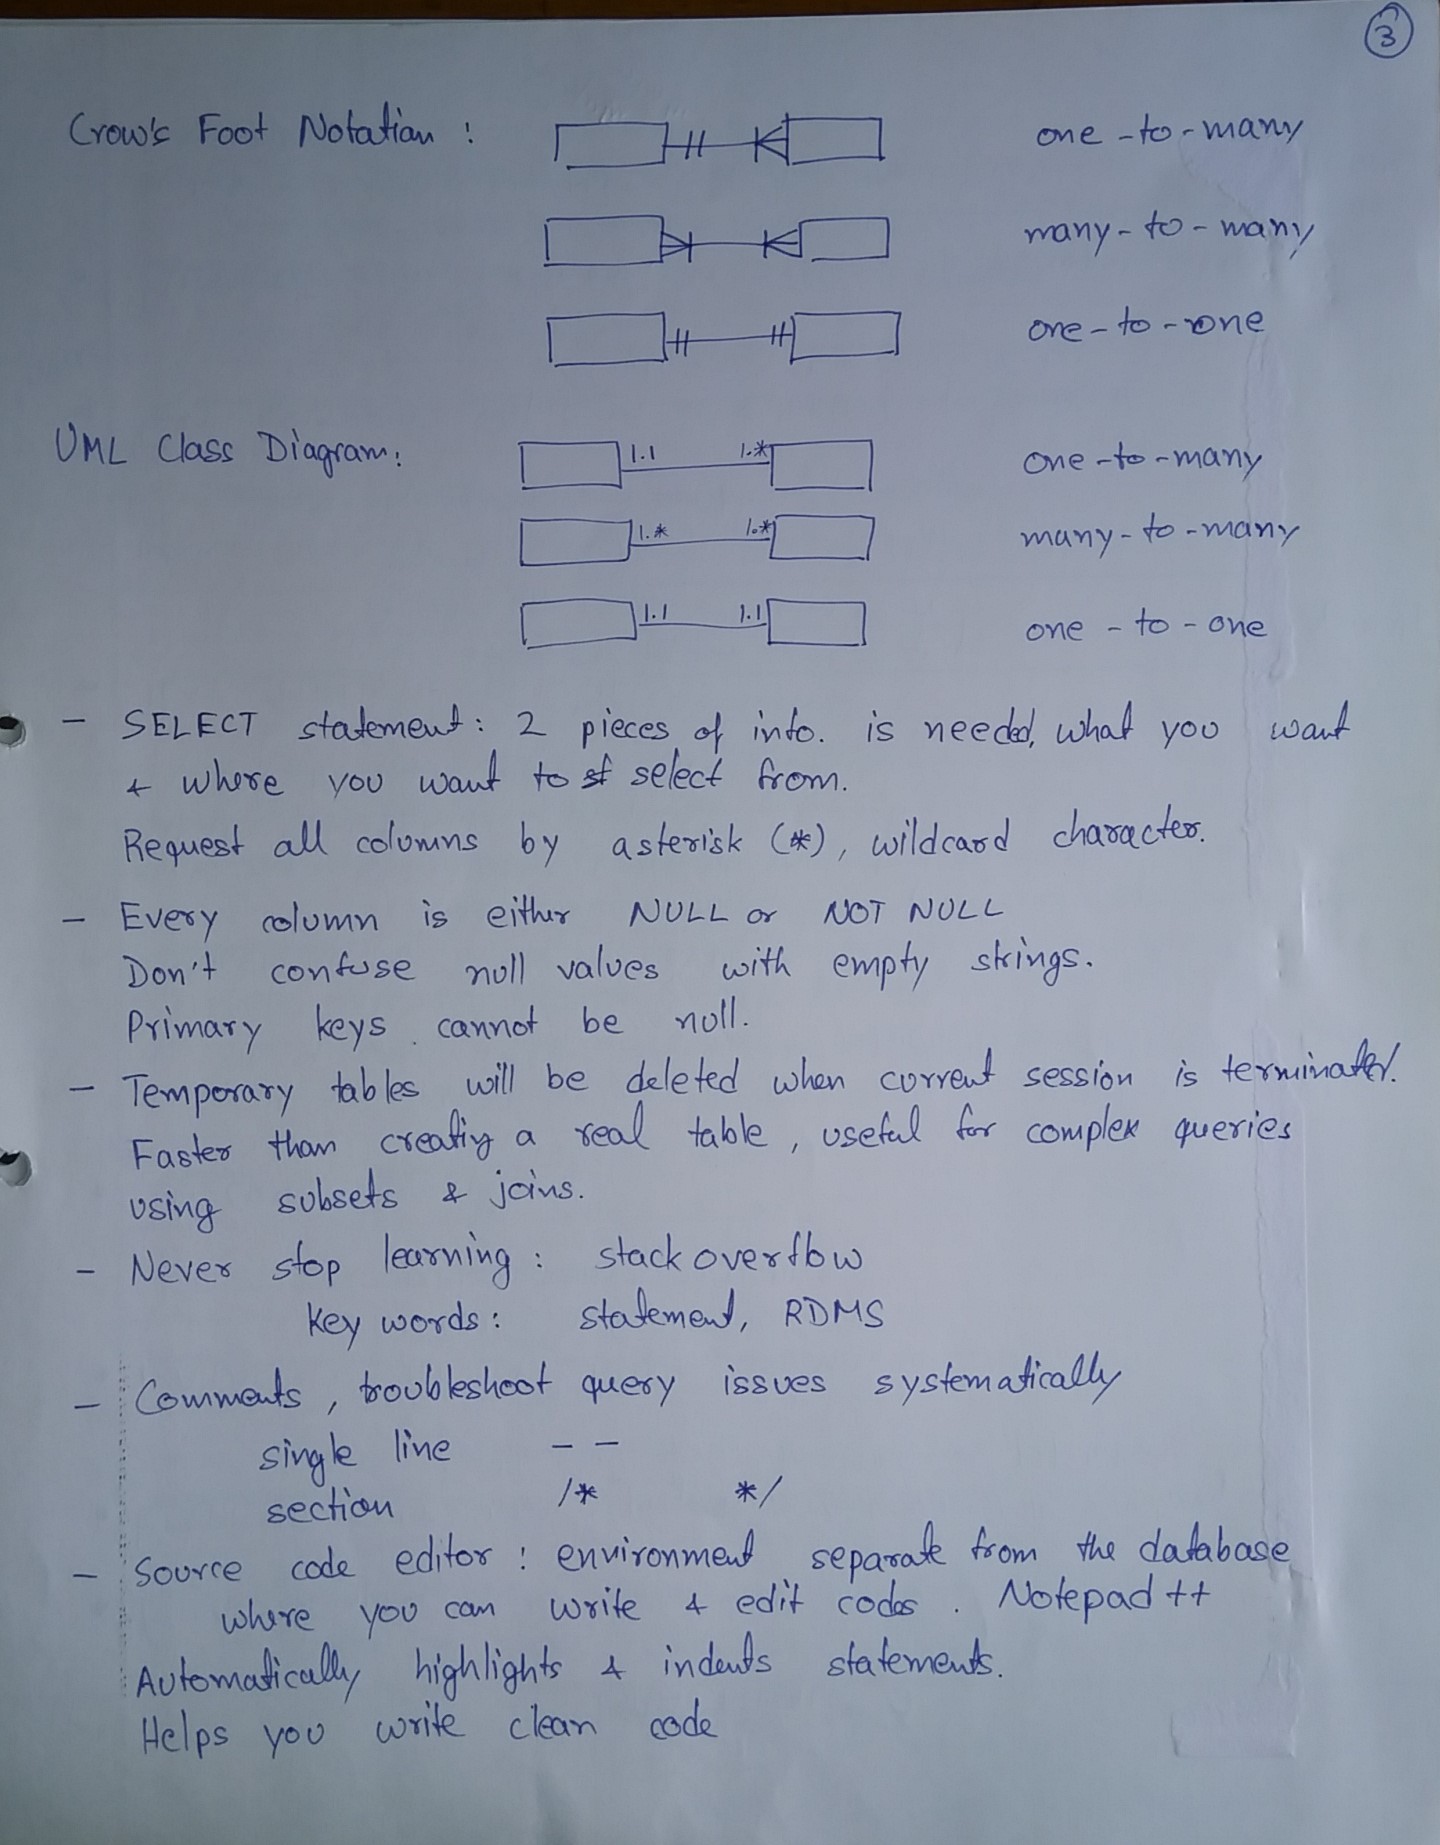 3
Crow's Foot Notation : one-to-many
many-to-many
one-to-one
UML Class Diagram: 1.1 1.* one-to-many
1.* 1.* many-to-many
1.1 1.1 one-to-one
- SELECT statement: 2 pieces of info. is needed, what you want
& where you want to select from.
Request all columns by asterisk (*), wildcard character.
- Every column is either NULL or NOT NULL
Don't confuse null values with empty strings.
Primary keys cannot be null.
- Temporary tables will be deleted when current session is terminated.
Faster than creating a real table, useful for complex queries
using subsets & joins.
- Never stop learning: stack overflow
key words: statement, RDMS
- Comments, troubleshoot query issues systematically
single line --
section /* */
- Source code editor: environment separate from the database
where you can write & edit codes. Notepad ++
Automatically highlights & indents statements.
Helps you write clean code